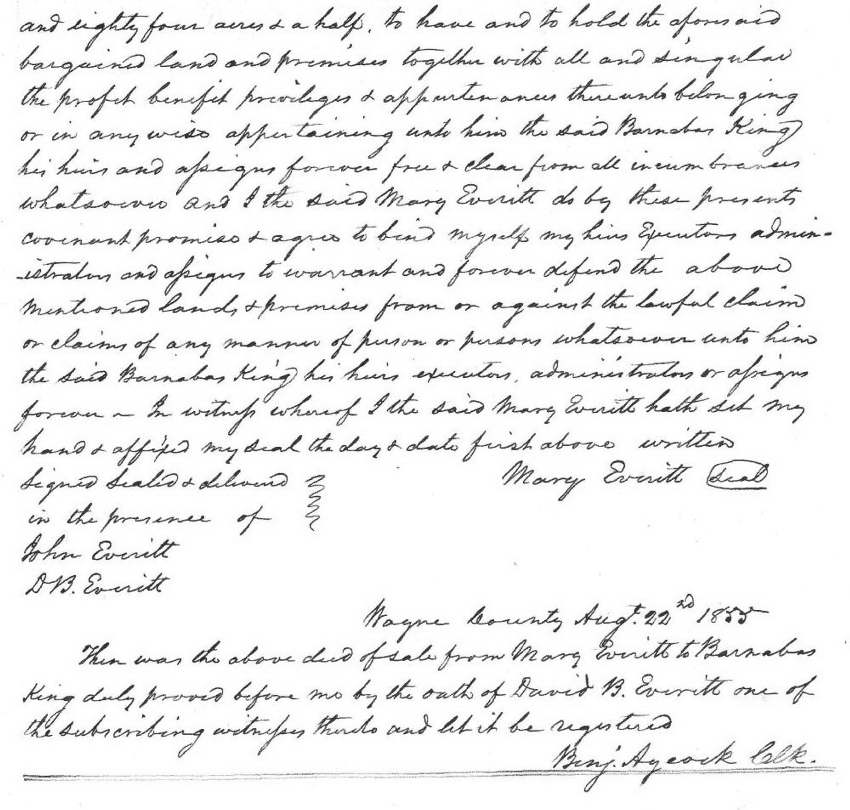 and eighty four acres & a half, to have and to hold the aforesaid
bargained land and premises together with all and singular
the profit benefit privileges & appurtenances thereunto belonging
or in any wise appertaining unto him the said Barnabas King
his heirs and assigns forever free & clear from all incumbrances
whatsoever and I the said Mary Everitt do by these presents
covenant promise & agree to bind myself my heirs Executors admin-
-istrators and assigns to warrant and forever defend the above
mentioned lands & premises from or against the lawful claim
or claims of any manner of person or persons whatsoever unto him
the said Barnabas King his heirs executors, administrators or assigns
forever ~ In witness whereof I the said Mary Everitt hath set my
hand & affixed my seal the day & date first above written
Signed sealed & delivered Mary Everitt seal
in the presence of
John Everitt
D B. Everitt
Wayne County Augt. 22nd 1855
Then was the above deed of sale from Mary Everitt to Barnabas
King duly proved before me by the oath of David B. Everitt one of
the subscribing witnesses thereto and let it be registered
Benj. Aycock Clk.